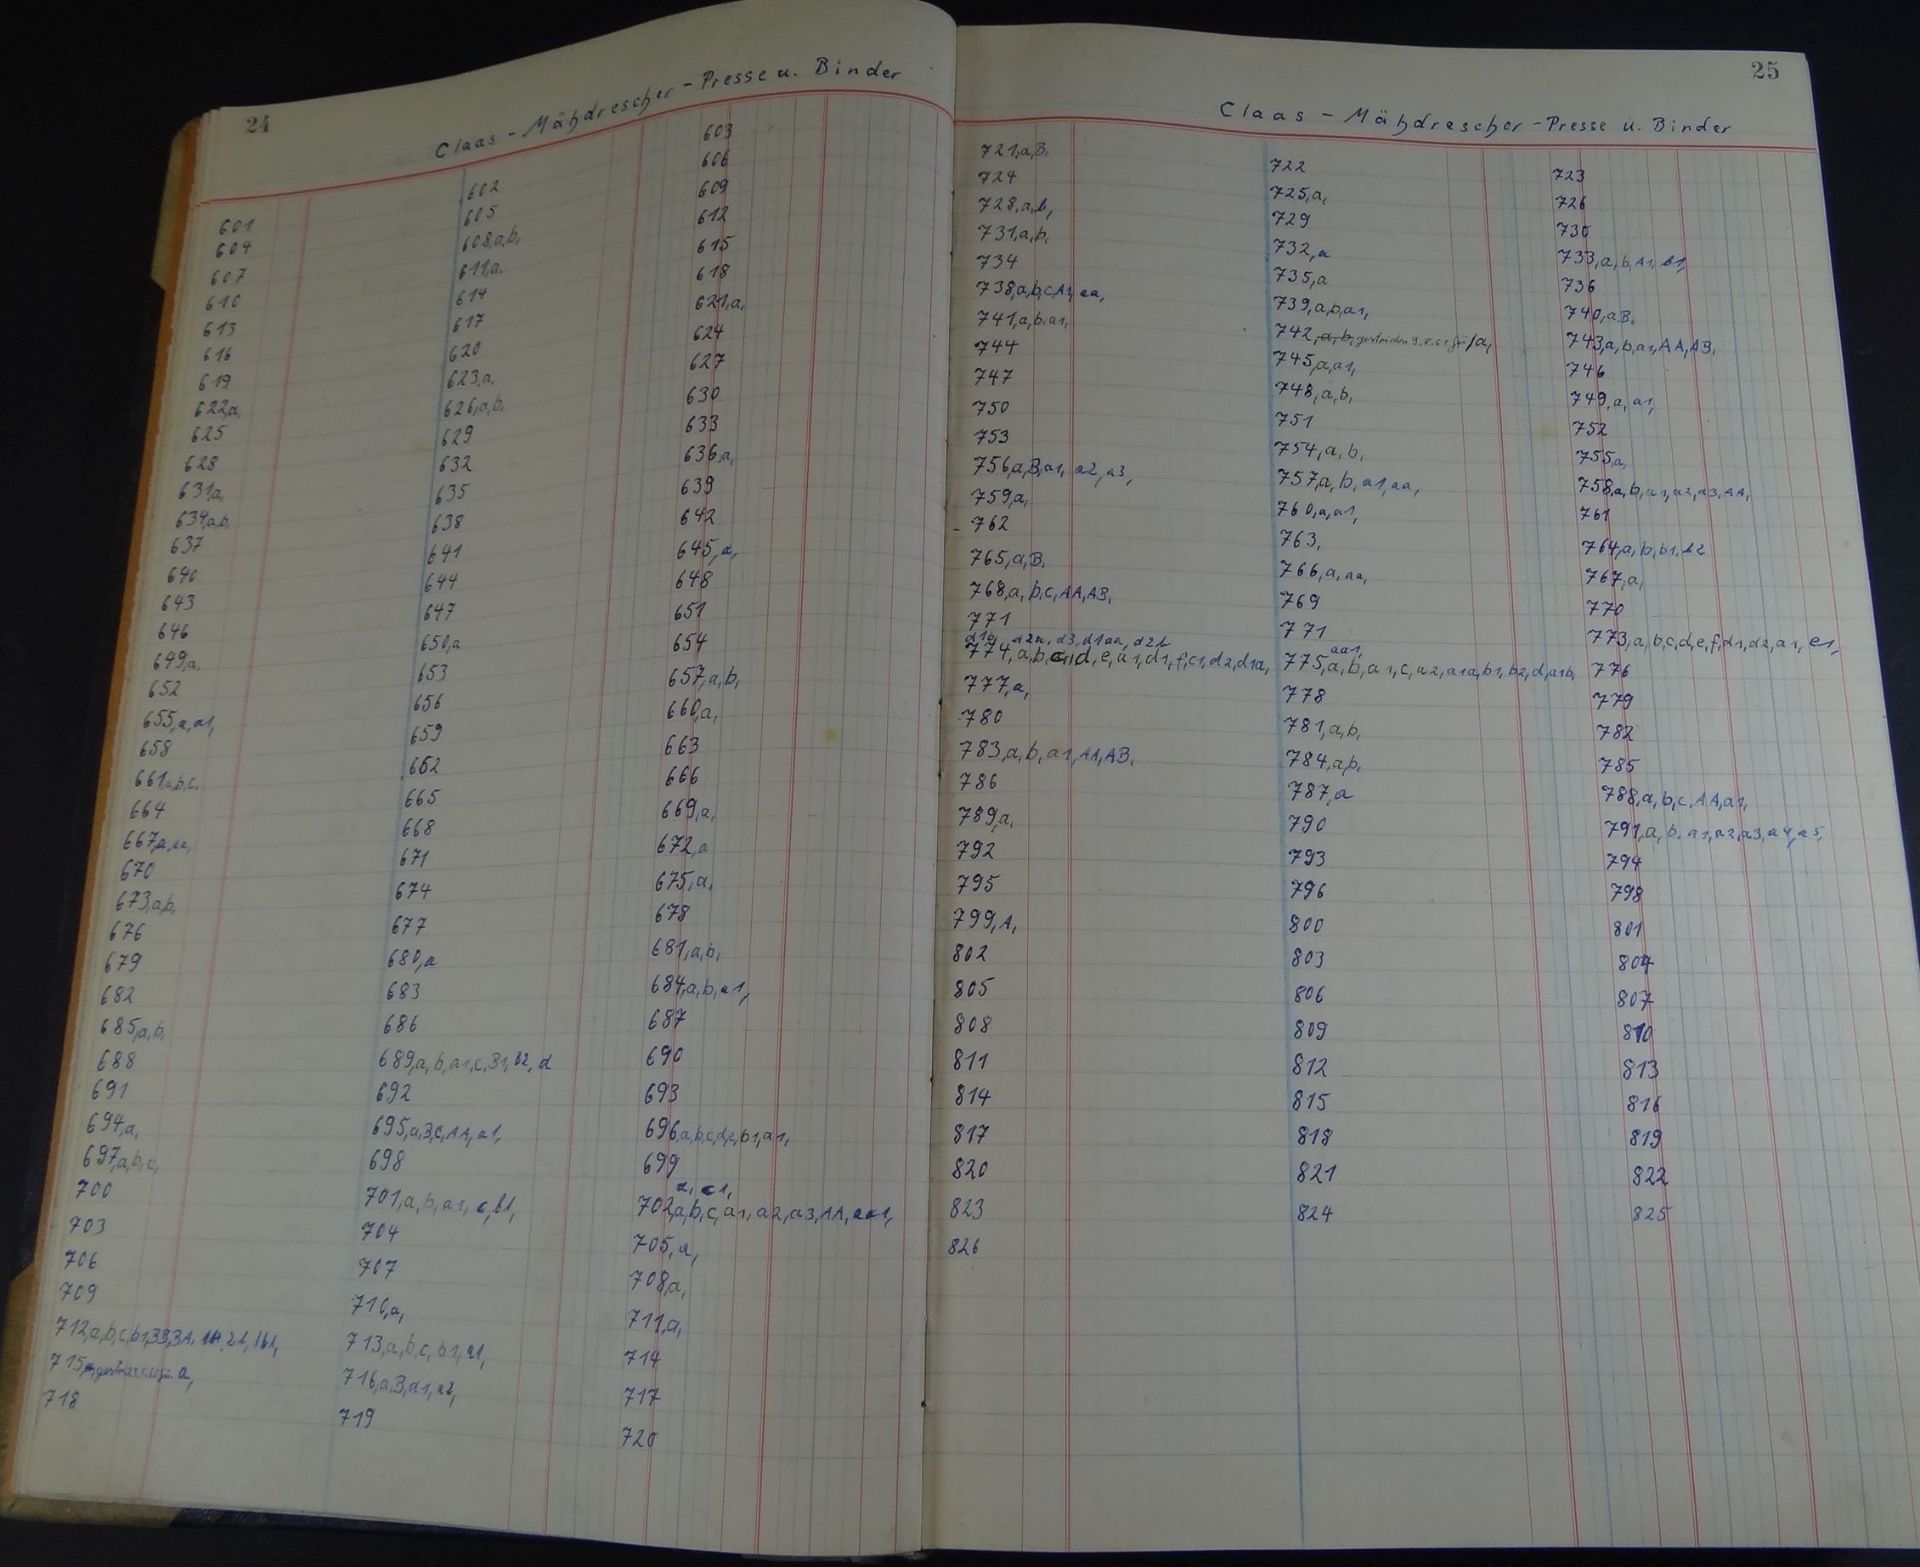 24
Claas - Mähdrescher - Presse u. Binder
601 602 603
604 605 606
607 608,a,b, 609
610 611,a, 612
613 614 615
616 617 618
619 620 621,a,
622,a, 623,a, 624
625 626,a,b, 627
628 629 630
631,a, 632 633
634,a,b, 635 636,a,
637 638 639
640 641 642
643 644 645,a,
646 647 648
649,a, 650,a 651
652 653 654
655,a,a1, 656 657,a,b,
658 659 660,a,
661,a,b,c, 662 663
664 665 666
667,a,aa, 668 669,a,
670 671 672,a
673,a,b, 674 675,a,
676 677 678
679 680,a 681,a,b,
682 683 684,a,b,a1,
685,a,b, 686 687
688 689,a,b,a1,c,B1,b2,d 690
691 692 693
694,a, 695,a,B,C,AA,a1, 696,a,b,c,d,e,b1,a1,
697,a,b,c, 698 699
c1,
700 701,a,b,a1,c,b1, 702,a,b,c,a1,a2,a3,AA,aa1,
703 704 705,a,
706 707 708,a,
709 710,a, 711,a,
712,a,b,c,b1, 713,a,b,c,b1,a1, 714
715 a, 716,a,B,a1,a2, 717
718 719 720
25
Claas - Mähdrescher - Presse u. Binder
721,a,B, 722 723
724 725,a, 726
728,a,b, 729 730
731,a,b, 732,a 733,a,b,A1,b1,
734 735,a 736
738,a,b,c,A1,aa, 739,a,b,a1, 740,a,B,
741,a,b,a1, 742,a,b, /a, 743,a,b,a1,AA,AB,
744 745,a,a1, 746
747 748,a,b, 749,a,a1,
750 751 752
753 754,a,b, 755,a,
756,a,B,a1,a2,a3, 757,a,b,a1,aa, 758,a,b,a1,a2,a3,AA,
759,a, 760,a,a1, 761
762 763, 764,a,b,b1,b2
765,a,B, 766,a,aa, 767,a,
768,a,b,c,AA,AB, 769 770
771 771 773,a,b,c,d,e,f,d1,d2,a1,e1,
d1a, d2a, d3, d1aa, d2b aa1,
774,a,b,c,d,e,a1,d1,f,c1,d2,d1a, 775,a,b,a1,c,a2,a1a,b1,b2,d,a1b, 776
777,a, 778 779
780 781,a,b, 782
783,a,b,a1,AA,AB, 784,a,b, 785
786 787,a 788,a,b,c,AA,a1,
789,a, 790 791,a,b,a1,a2,a3,a4,a5,
792 793 794
795 796 798
799,A, 800 801
802 803 804
805 806 807
808 809 810
811 812 813
814 815 816
817 818 819
820 821 822
823 824 825
826